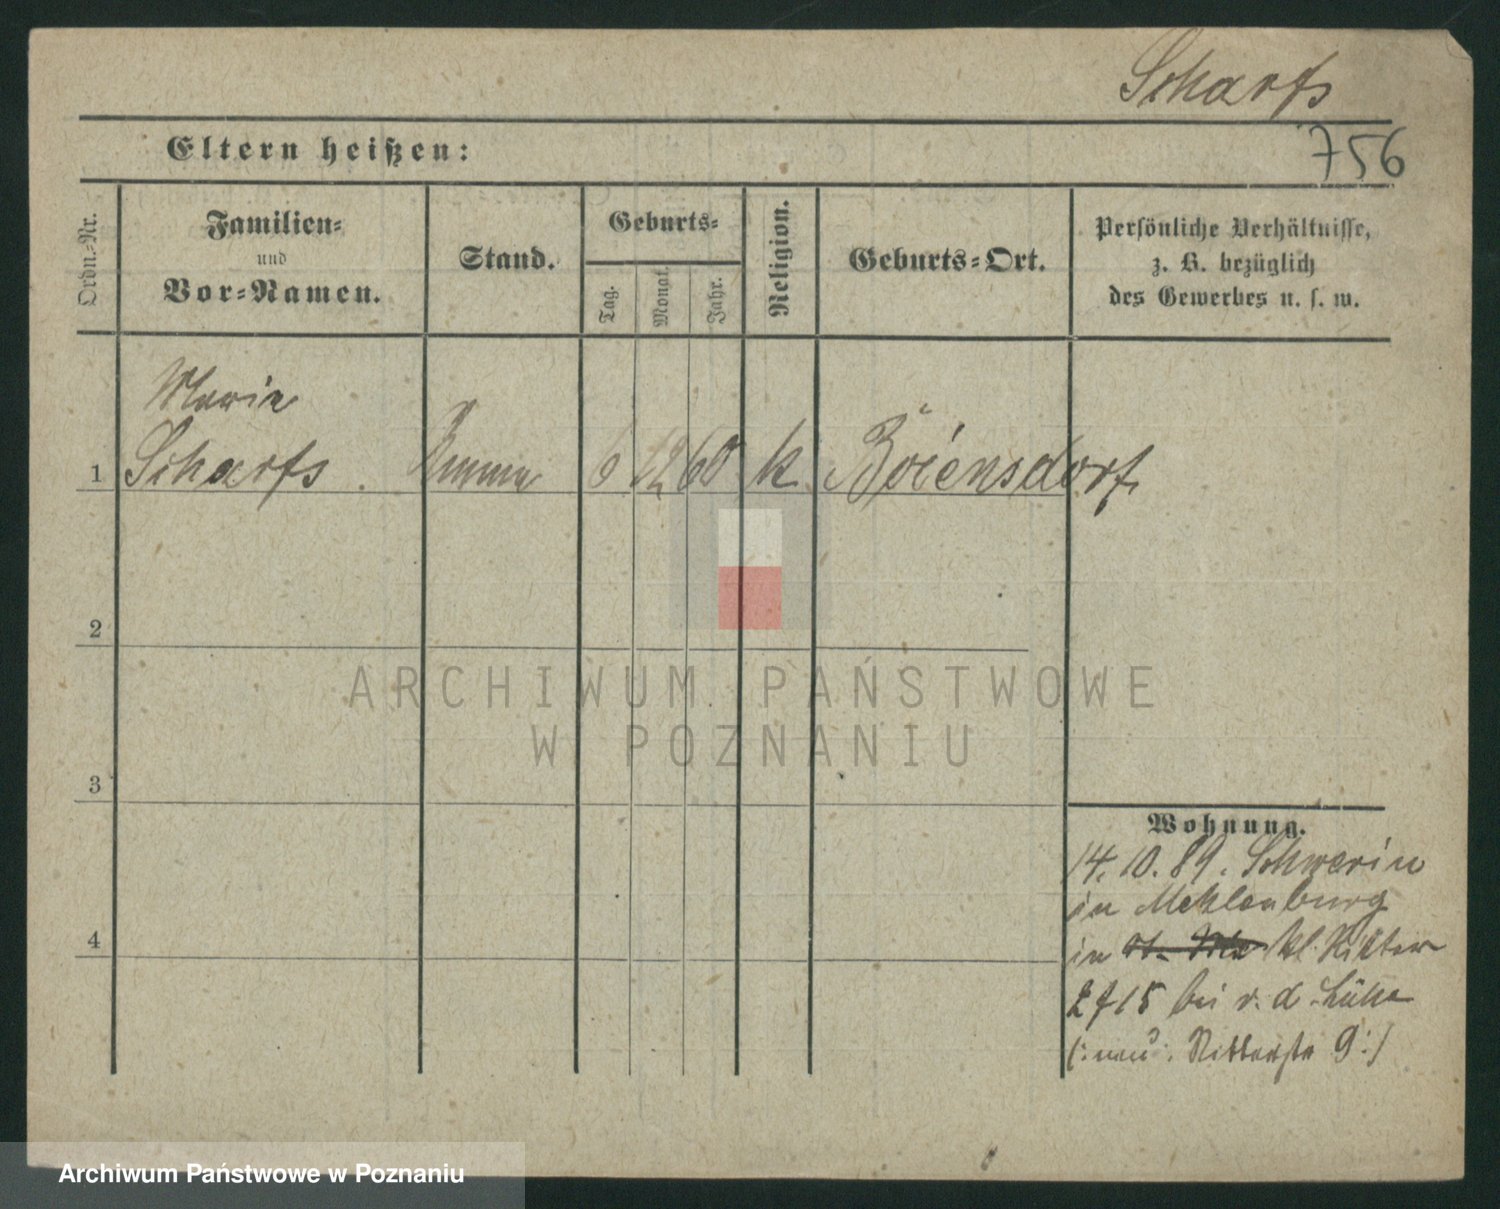 Scharfs
Eltern heißen:
756
Ordn.-Nr.
Familien-
und
Vor-Namen.
Stand.
Geburts-
Tag.
Monat.
Jahr.
Religion.
Geburts-Ort.
Persönliche Verhältnisse,
z. B. bezüglich
des Gewerbes u. s. w.
Marie
1 Scharfs. 6 12 60 k Boiensdorf.
2
ARCHIWUM PAŃSTWOWE
W POZNANIU
3
Wohnung.
14. 10. 89. Schwerin
in Meklenburg
4
in kl. Ritter
2 f 15 bei v. d. Lühe
(: neu: Ritterstr 9 :)
Archiwum Państwowe w Poznaniu